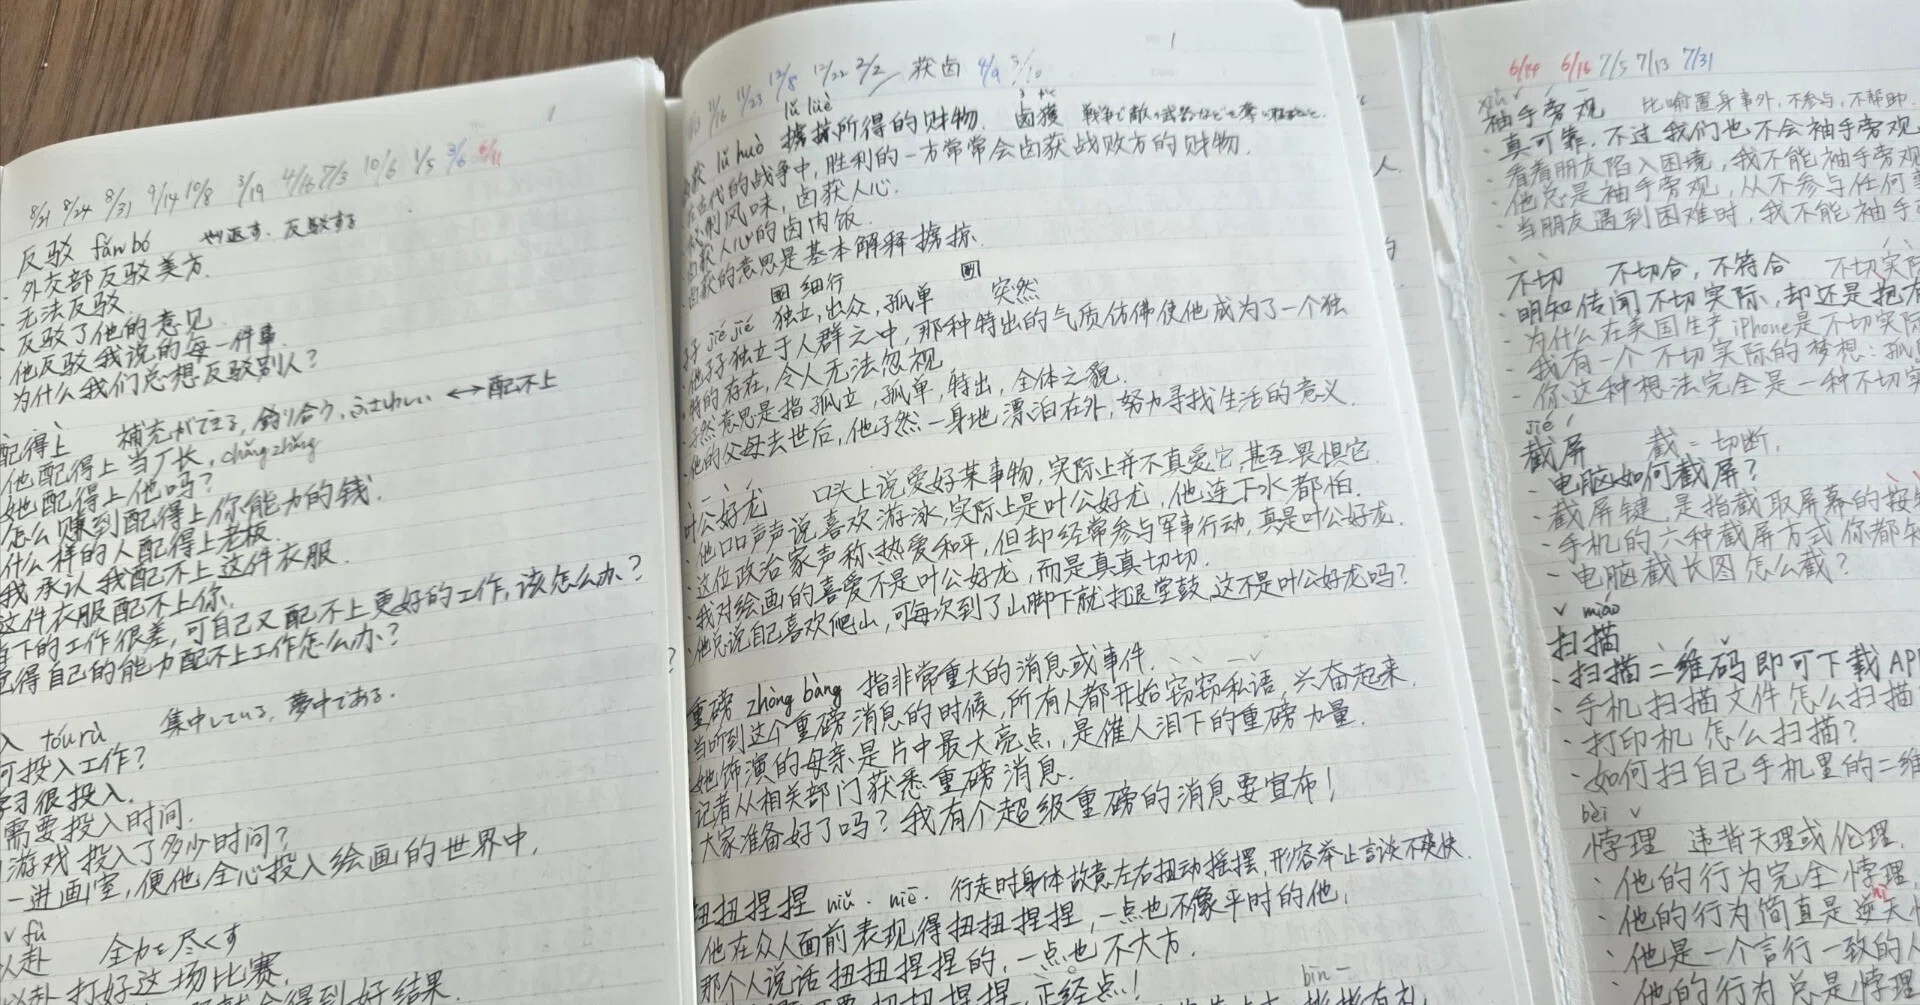 1
8/21 8/24 8/31 9/14 10/8 3/19 4/16 7/3 10/6 1/5 3/6 6/11
反驳 fǎn bó やり返す、反駁する
· 外交部反驳美方.
· 无法反驳.
· 反驳了他的意见.
· 他反驳我说的每一件事.
为什么我们总想反驳别人?
配得上 補充ができる, 釣り合う, ふさわしい ↔ 配不上
他配得上当厂长, chǎng zhǎng
她配得上他吗?
怎么赚到配得上你能力的钱.
什么样的人配得上老板.
我承认我配不上这件衣服.
这件衣服配不上你.
下的工作很差, 可自己又配不上更好的工作, 该怎么办?
觉得自己的能力配不上工作怎么办?
入 tóu rù 集中している, 夢中である.
何投入工作?
习很投入.
需要投入时间.
游戏投入了多少时间?
一进画室, 便他全心投入绘画的世界中,
fù
以赴 全力を尽くす
以赴打好这场比赛,
得到好结果.
1
11/23 12/8 12/22 2/2 获卤 4/9
lǔ lüè
获 lǔ huò 掳掠所得的财物. 鹵獲
古代的战争中, 胜利的一方常常会卤获战败方的财物.
制风味, 卤获人心.
卤获人心的卤肉饭.
卤获的意思是基本解释掳掠.
国 细行
子 jié jié 独立, 出众, 孤单 突然
他孑孑独立于人群之中, 那种特出的气质仿佛使他成为了一个独
特的存在, 令人无法忽视
孑然意思是指孤立, 孤单, 特出, 全体之貌.
他的父母去世后, 他孑然一身地漂泊在外, 努力寻找生活的意义.
叶公好龙 口头上说爱好某事物, 实际上并不真爱它, 甚至畏惧它.
· 他口口声声说喜欢游泳, 实际上是叶公好龙, 他连下水都怕.
· 这位政治家声称热爱和平, 但却经常参与军事行动, 真是叶公好龙.
· 我对绘画的喜爱不是叶公好龙, 而是真真切切.
· 他总说自己喜欢爬山, 可每次到了山脚下就打退堂鼓, 这不是叶公好龙吗?
重磅 zhòng bàng 指非常重大的消息或事件.
当听到这个重磅消息的时候, 所有人都开始窃窃私语, 兴奋起来.
她饰演的母亲是片中最大亮点, 是催人泪下的重磅力量.
记者从相关部门获悉重磅消息.
大家准备好了吗? 我有个超级重磅的消息要宣布!
扭扭捏捏 niǔ. niē. 行走时身体故意左右扭动摇摆, 形容举止言谈不爽快.
他在众人面前表现得扭扭捏捏, 一点也不像平时的他,
那个人说话扭扭捏捏的, 一点也不大方.
扭扭捏捏, 正经点!
bīn
彬彬有礼
6/14 6/16 7/5 7/13 7/31
xiù
袖手旁观 比喻置身事外, 不参与, 不帮助.
· 真可靠. 不过我们也不会袖手旁观
· 看着朋友陷入困境, 我不能袖手旁观
· 他总是袖手旁观, 从不参与任何
· 当朋友遇到困难时, 我不能袖手
不切 不切合, 不符合 不切实际
· 明知传闻不切实际, 却还是抱有
· 为什么在美国生产iPhone是不切实际
· 我有一个不切实际的梦想:
· 你这种想法完全是一种不切实
jié
截屏 截 = 切断.
· 电脑如何截屏?
· 截屏键, 是指截取屏幕的按
· 手机的六种截屏方式你都
· 电脑截长图怎么截?
miáo
扫描
· 扫描二维码即可下载AP
· 手机扫描文件怎么扫描
· 打印机怎么扫描?
· 如何扫自己手机里的二维
bèi
悖理 违背天理或伦理.
· 他的行为完全悖理
nì
· 他的行为简直是逆天
· 他是一个言行一致的人
· 他的行为总是悖理